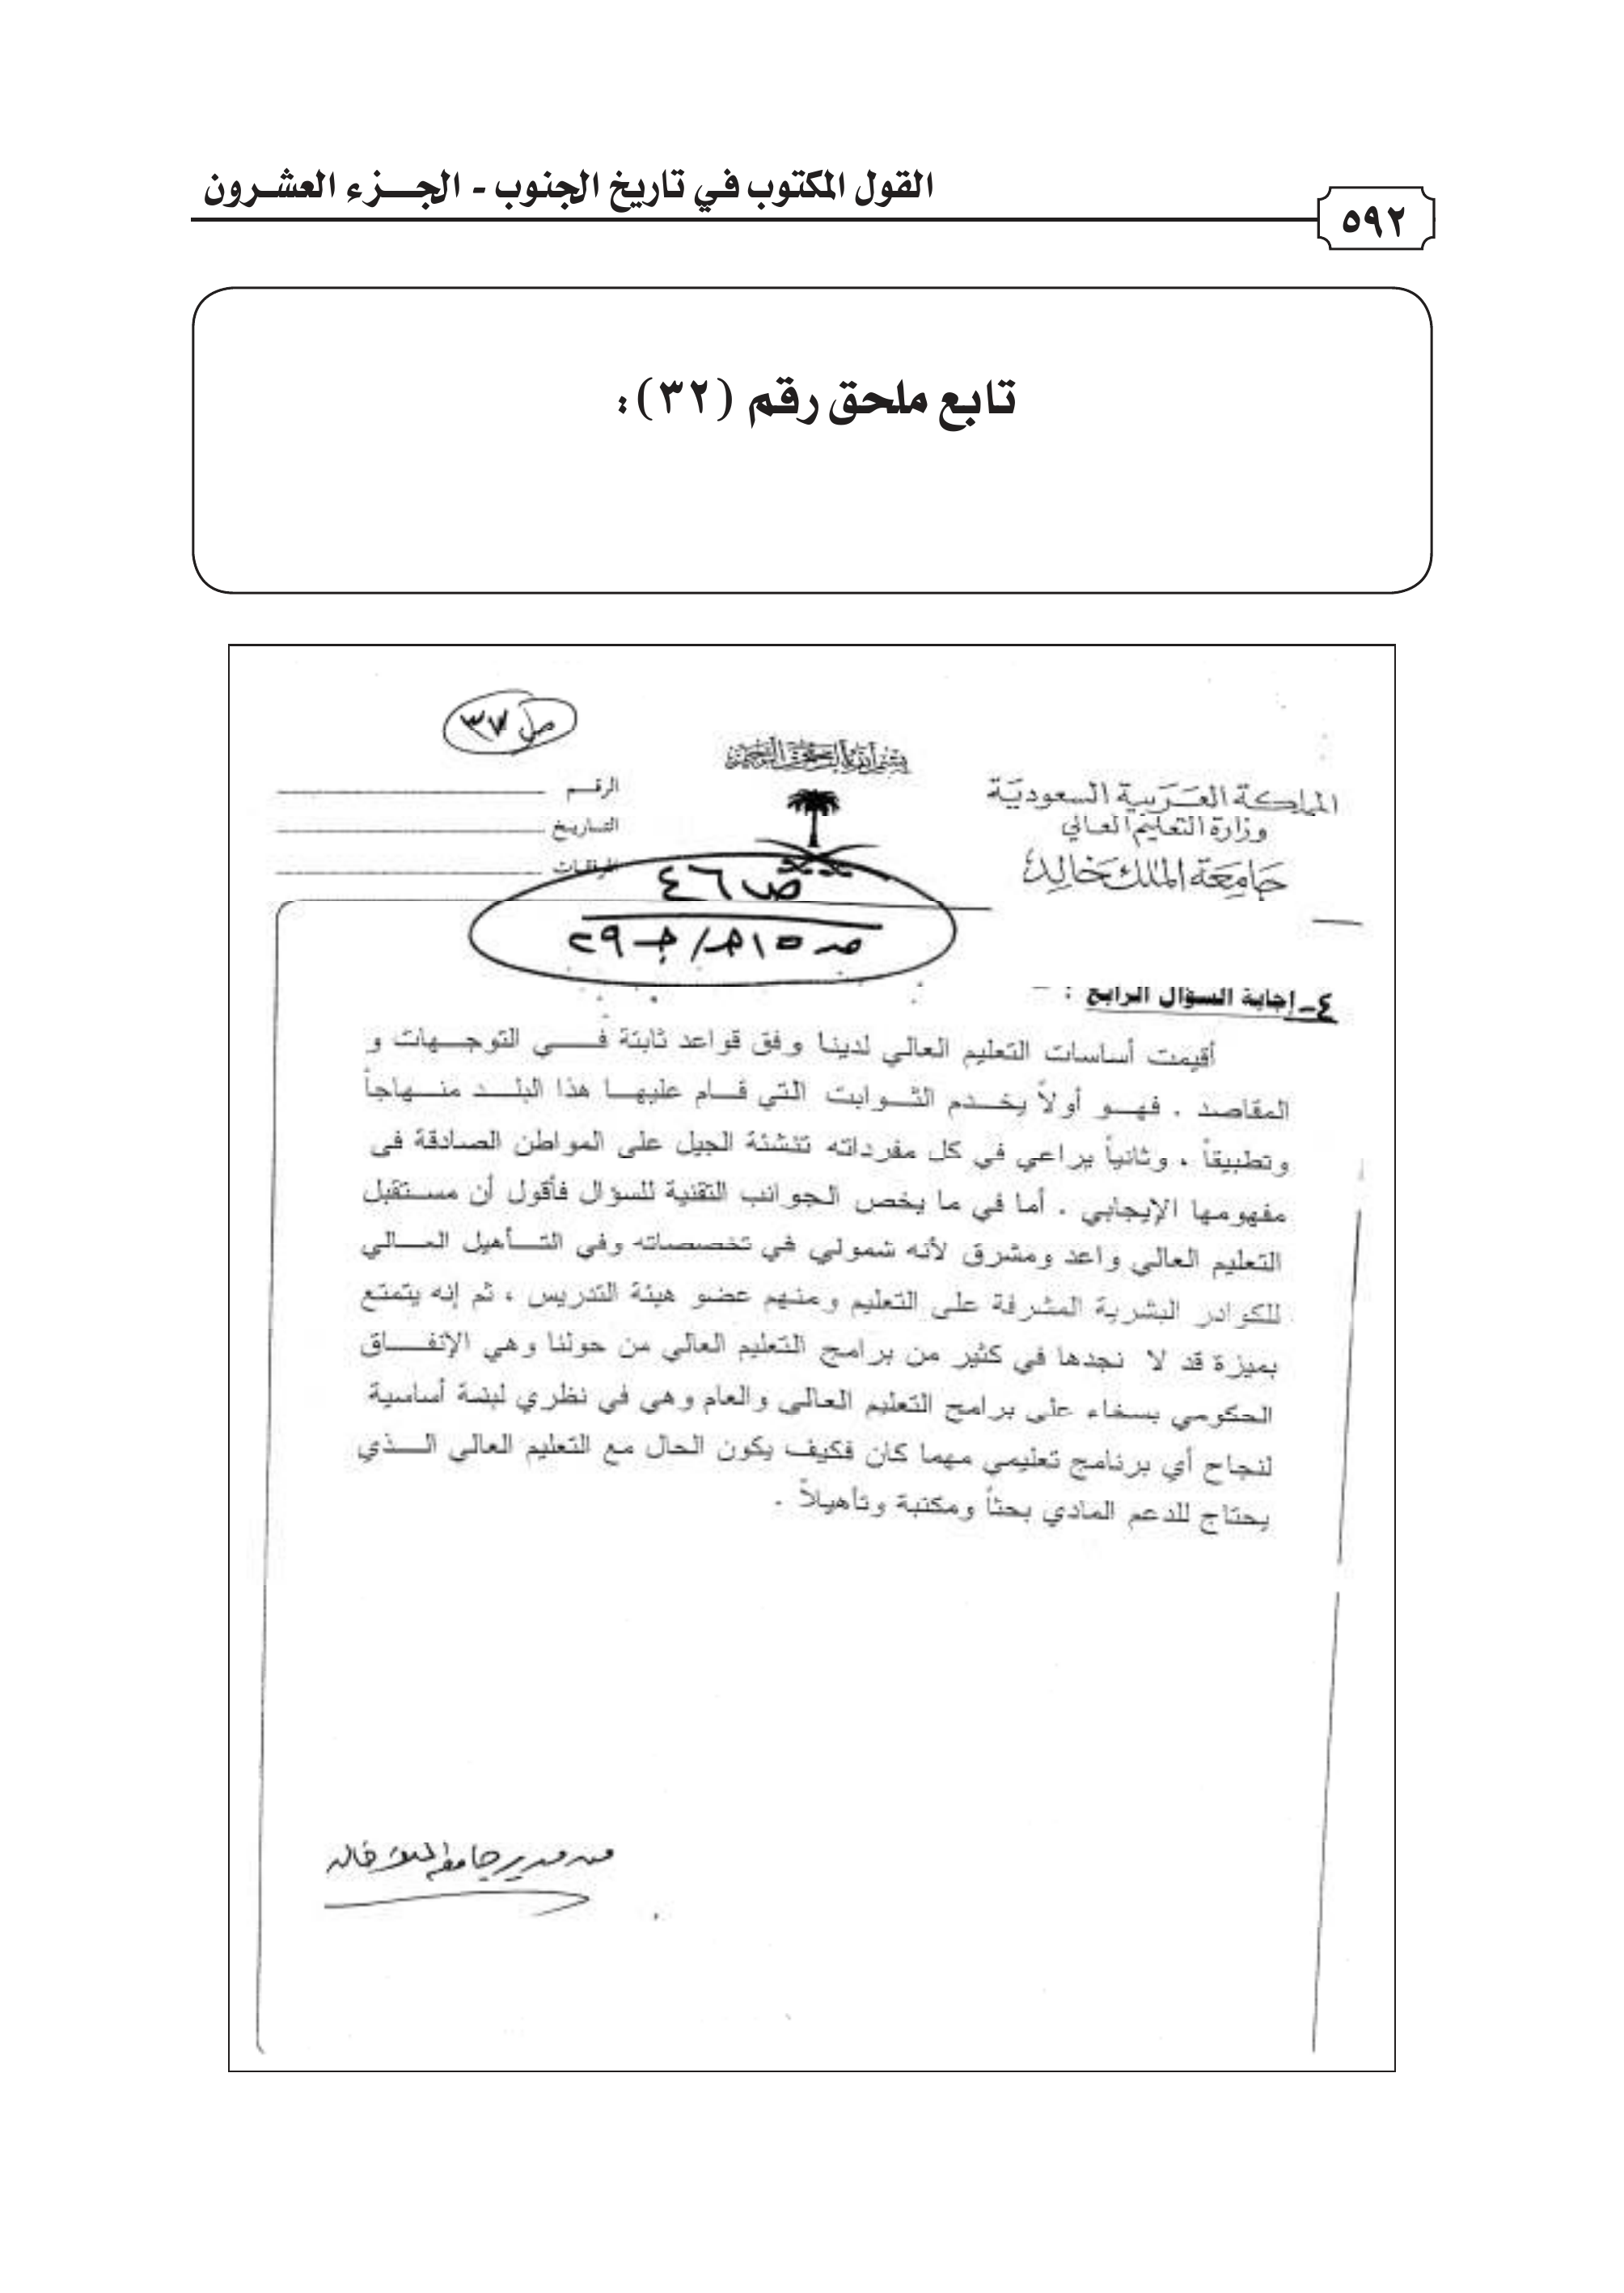 القول المكتوب في تاريخ الجنوب - الجـــزء العشـرون
٥٩٢
تابع ملحق رقم (٣٢):
ص ٣٧
بسم الله الرحمن الرحيم
المملكة العربية السعودية
وزارة التعليم العالي
جامعة الملك خالد
الرقــم
التـاريـخ
المرفقـات
ص ٤٦
٤- إجابة السؤال الرابع : -
أقيمت أساسات التعليم العالي لدينا وفق قواعد ثابتة فـــي التوجـــهات و
المقاصد . فهــو أولاً يخــدم الثــوابت التي قــام عليهــا هذا البلــد منــهاجاً
وتطبيقاً . وثانياً يراعي في كل مفرداته تنشئة الجيل على المواطن الصادقة فى
مفهومها الإيجابي . أما في ما يخص الجوانب التقنية للسؤال فأقول أن مســتقبل
التعليم العالي واعد ومشرق لأنه شمولي في تخصصاته وفي التــأهيل العــالي
للكوادر البشرية المشرفة على التعليم ومنهم عضو هيئة التدريس ، ثم إنه يتمتع
بميزة قد لا نجدها في كثير من برامج التعليم العالي من حولنا وهي الإنفـــاق
الحكومي بسخاء على برامج التعليم العالي والعام وهي في نظري لبنة أساسية
لنجاح أي برنامج تعليمي مهما كان فكيف يكون الحال مع التعليم العالي الــذي
يحتاج للدعم المادي بحثاً ومكتبة وتأهيلاً .
من مدير جامعة الملك خالد